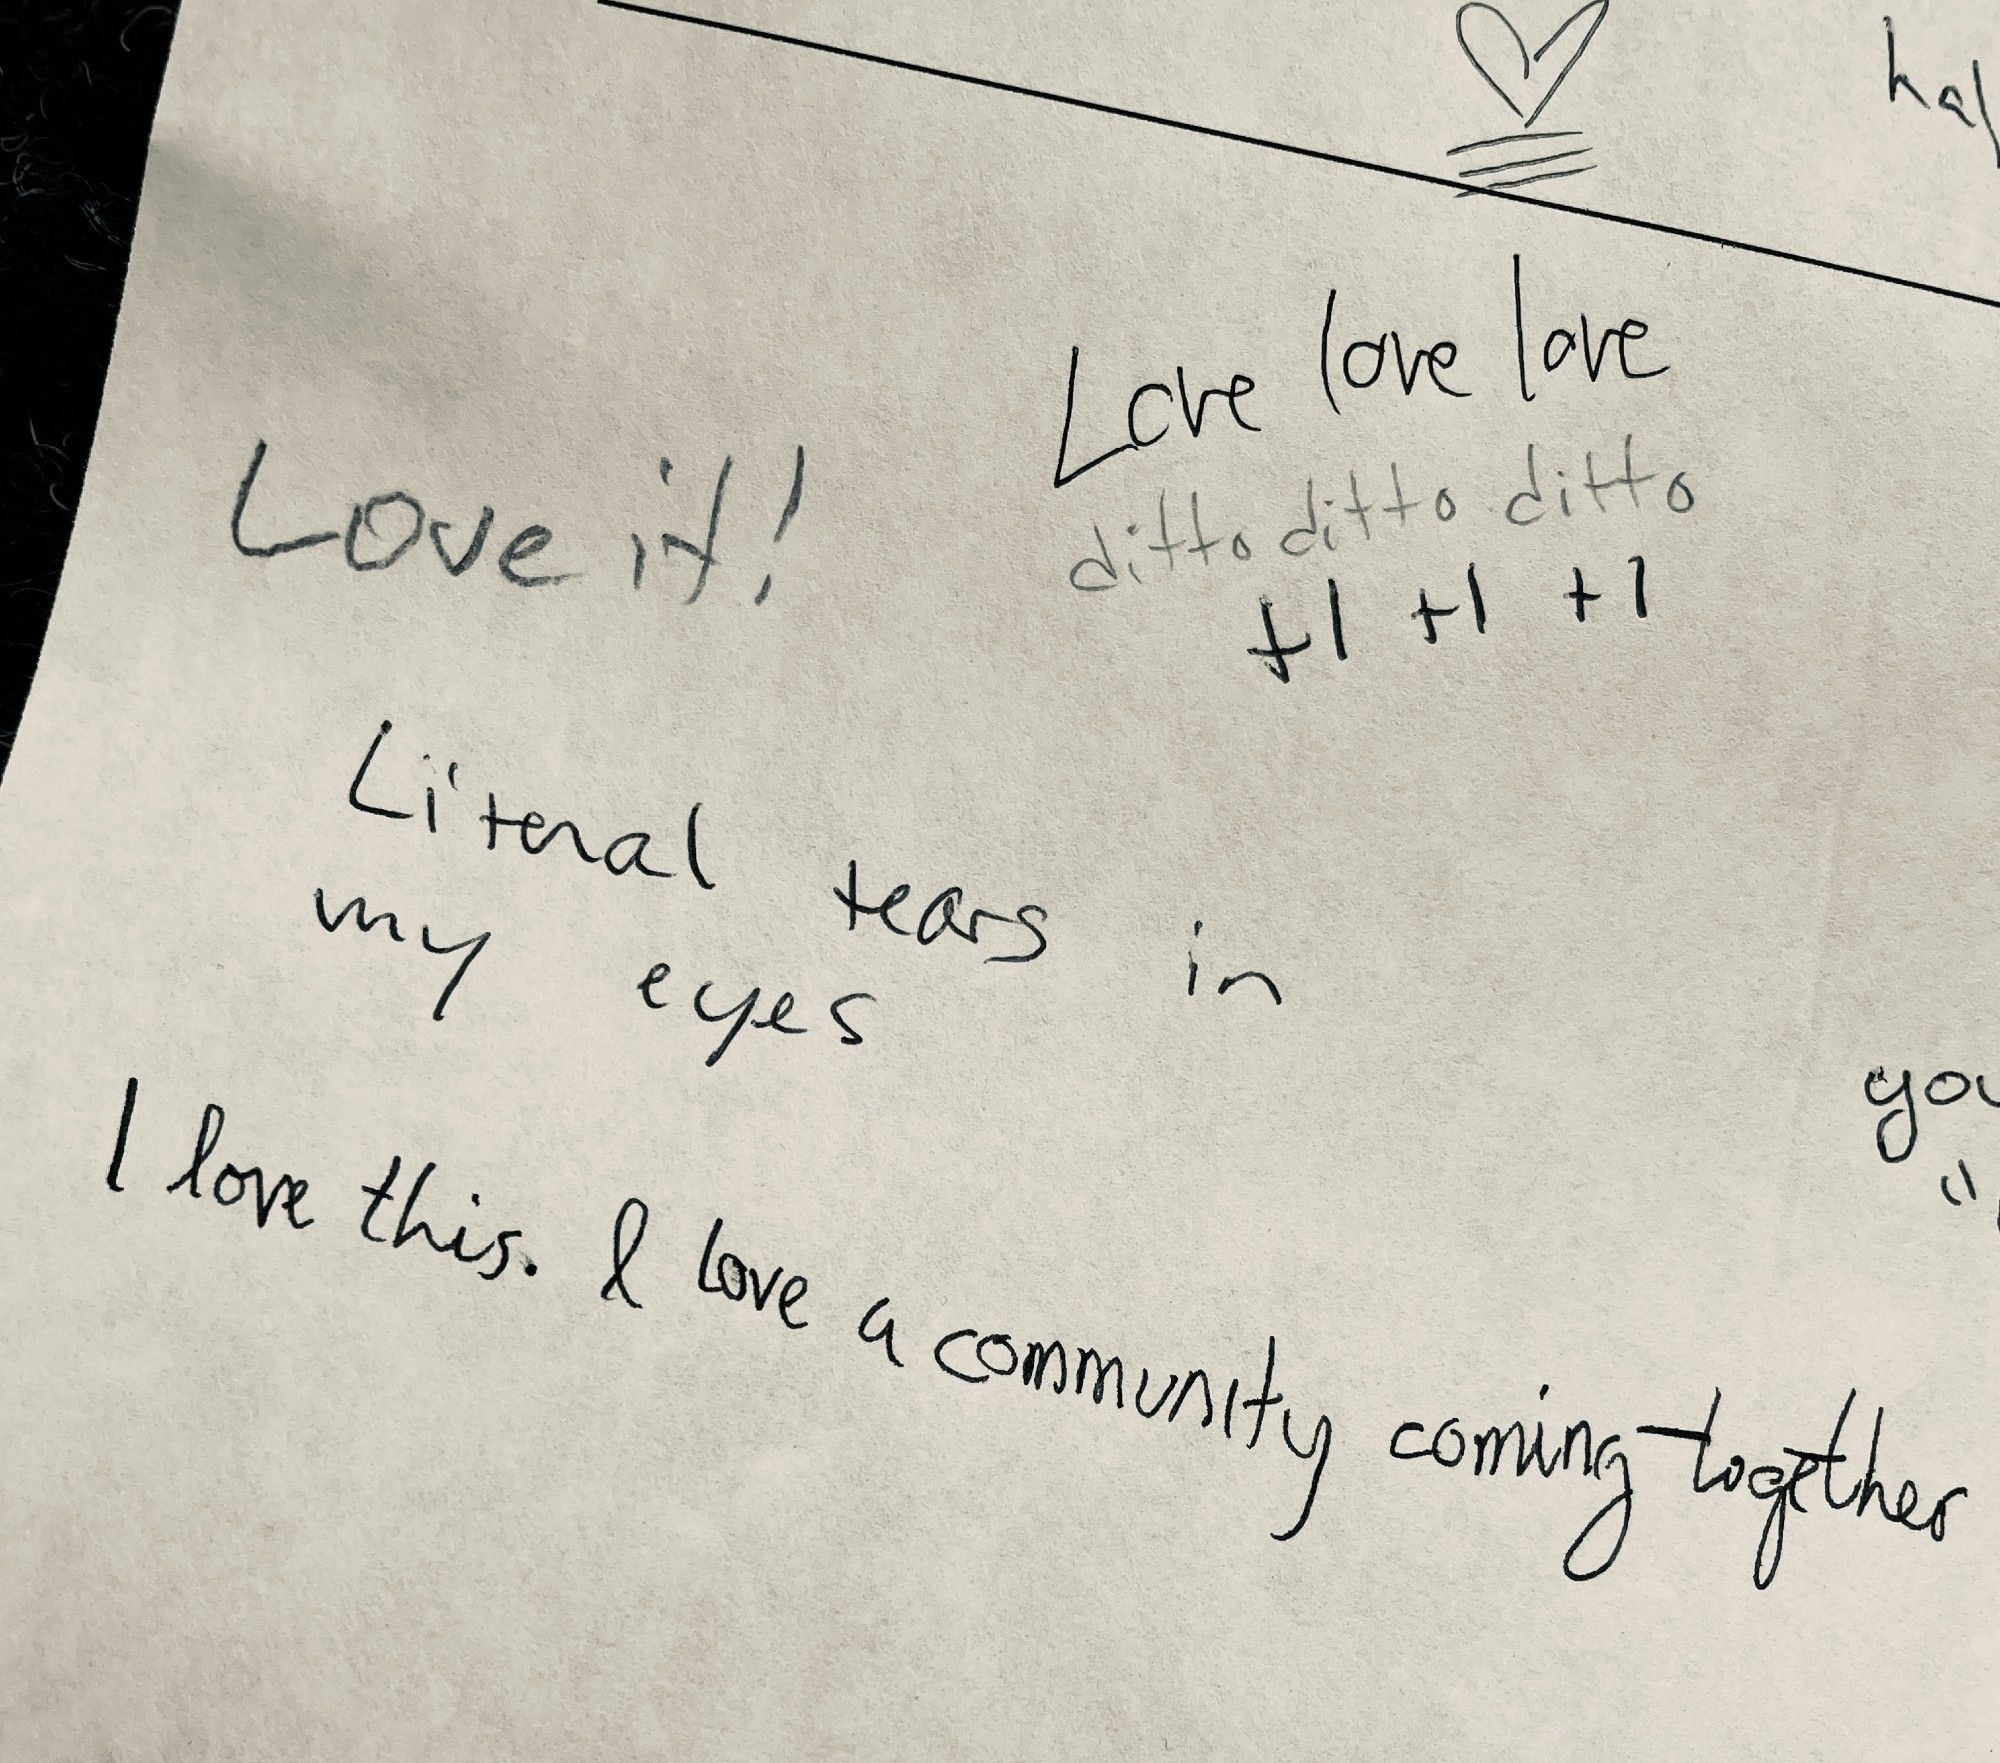 Love love love
ditto ditto ditto
+1 +1 +1
Love it!
Literal tears in
my eyes
I love this. I love a community coming together